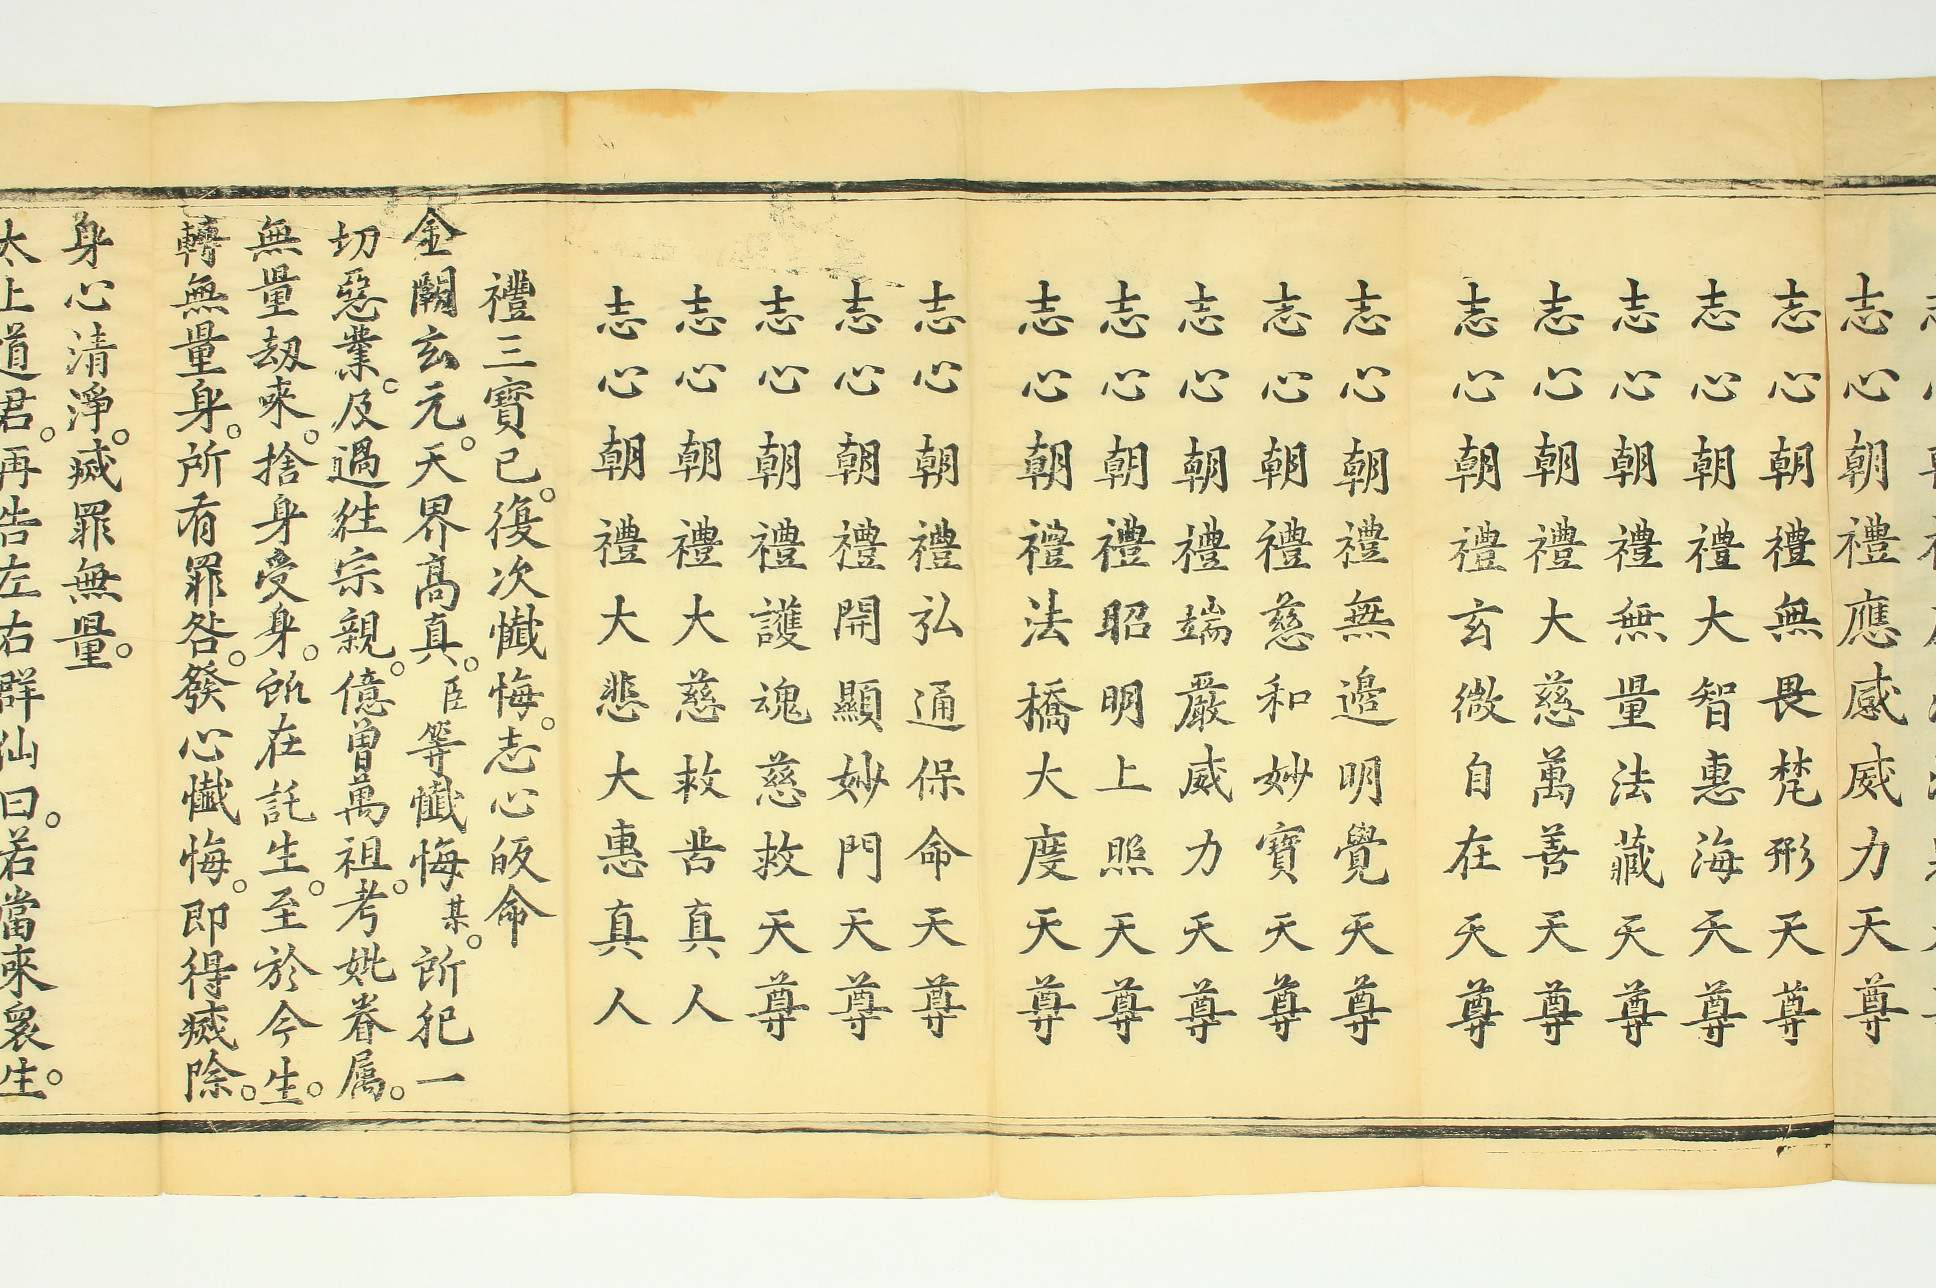 志心朝禮應感威力天尊
志心朝禮無畏梵形天尊
志心朝禮大智惠海天尊
志心朝禮無量法藏天尊
志心朝禮大慈萬善天尊
志心朝禮玄微自在天尊
志心朝禮無邊明覺天尊
志心朝禮慈和妙寶天尊
志心朝禮端嚴威力天尊
志心朝禮昭明上照天尊
志心朝禮法橋大度天尊
志心朝禮弘通保命天尊
志心朝禮開顯妙門天尊
志心朝禮護魂慈救天尊
志心朝禮大慈救苦真人
志心朝禮大悲大惠真人
禮三寶已。復次懺悔。志心皈命
金闕玄元。天界高真。臣等懺悔某。所犯一
切惡業。及過往宗親。億曾萬祖。考妣眷属。
無量劫来。捨身受身。所在託生。至於今生。
轉無量身。所有罪咎。發心懺悔。即得滅除。
身心清淨。滅罪無量。
太上道君。再告左右群仙曰。若當来衆生。